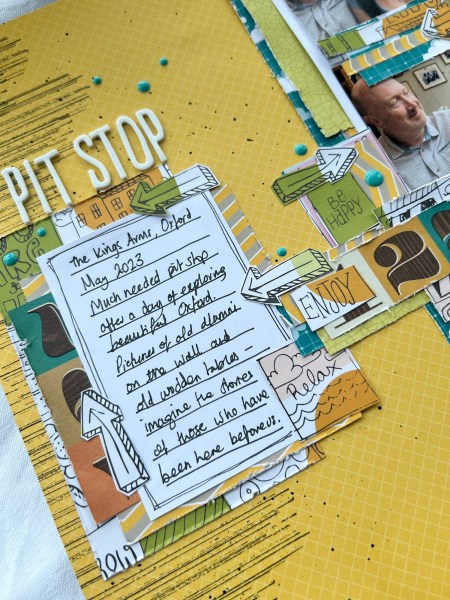 PIT STOP
The Kings Arms, Oxford
May 2023
Much needed pit stop
after a day of exploring
beautiful Oxford.
Pictures of old alumni
on the wall and
old wooden tables -
imagine the stories
of those who have
been here before us.
BE
HAPPY
ENJOY
2
Relax